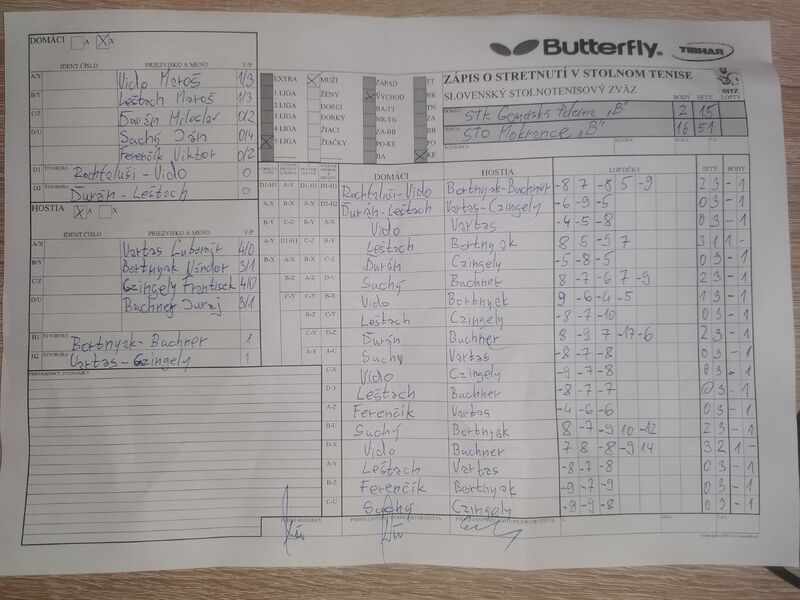 Butterfly
TIBHAR
DOMÁCI A X
IDENT ČÍSLO PRIEZVISKO A MENO V/P
A/X Vido Maroš 1/3
B/Y Leštach Maroš 1/3
C/Z Ďurán Miloslav 0/2
D/U Suchý Ján 0/4
Ferenčík Viktor 0/2
D1 ŠTVORHRA Rochfaluši - Vido 0
D2 ŠTVORHRA Ďurán - Leštach 0
HOSTIA A X
IDENT ČÍSLO PRIEZVISKO A MENO V/P
A/X Vartas Ľubomír 4/0
B/Y Bortnyak Nándor 3/1
C/Z Czingely František 4/0
D/U Buchner Juraj 3/1
H1 ŠTVORHRA Bortnyak - Buchner 1
H2 ŠTVORHRA Vartas - Czingely 1
PRIPOMIENKY, POZNÁMKY
EXTRA MUŽI ZÁPAD TT
1.LIGA ŽENY VÝCHOD NR
2.LIGA DORCI BA-TT
3.LIGA DORKY NR-TN
4.LIGA ŽIACI ZA-BB
5.LIGA ŽIAČKY PO-KE
BA KE
ZÁPIS O STRETNUTÍ V STOLNOM TENISE
SLOVENSKÝ STOLNOTENISOVÝ ZVÄZ
SSTZ
BODY SETY LOPTY
DOMÁCI STK Gemerská Poloma "B" 2 15
HOSTIA STO Mokrance "B" 16 51
DOMÁCI HOSTIA LOPTIČKY SETY BODY
Rochfaluši - Vido Bortnyak - Buchner -8 7 -8 5 -9 2 3 - 1
Ďurán - Leštach Vartas - Czingely -6 -9 -5 0 3 - 1
Vido Vartas -4 -5 -8 0 3 - 1
Leštach Bortnyak 8 5 -5 7 3 1 1 -
Ďurán Czingely -5 -8 -5 0 3 - 1
Suchý Buchner 8 -7 -6 7 -9 2 3 - 1
Vido Bortnyak 9 -6 -4 -5 1 3 - 1
Leštach Czingely -8 -7 -10 0 3 - 1
Ďurán Buchner 8 -9 7 -17 -6 2 3 - 1
Suchý Vartas -8 -7 -8 0 3 - 1
C-X Vido Czingely -9 -7 -8 0 3 - 1
D-Y Leštach Buchner -8 -7 -7 0 3 - 1
A-Z Ferenčík Vartas -4 -6 -6 0 3 - 1
B-U Suchý Bortnyak 8 -7 -9 10 -12 2 3 - 1
D-X Vido Buchner 7 8 -8 -9 14 3 2 1 -
A-Y Leštach Vartas -8 -7 -8 0 3 - 1
B-Z Ferenčík Bortnyak -9 -7 -9 0 3 - 1
C-U Suchý Czingely -9 -9 -8 0 3 - 1